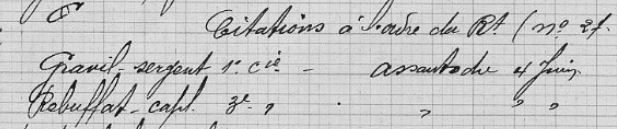 Citations à l'ordre du Rt (no 27.
Gravil - sergent 1e Cie - assauts du 4 Juin
Rebuffat - capl. 3e " . " " "